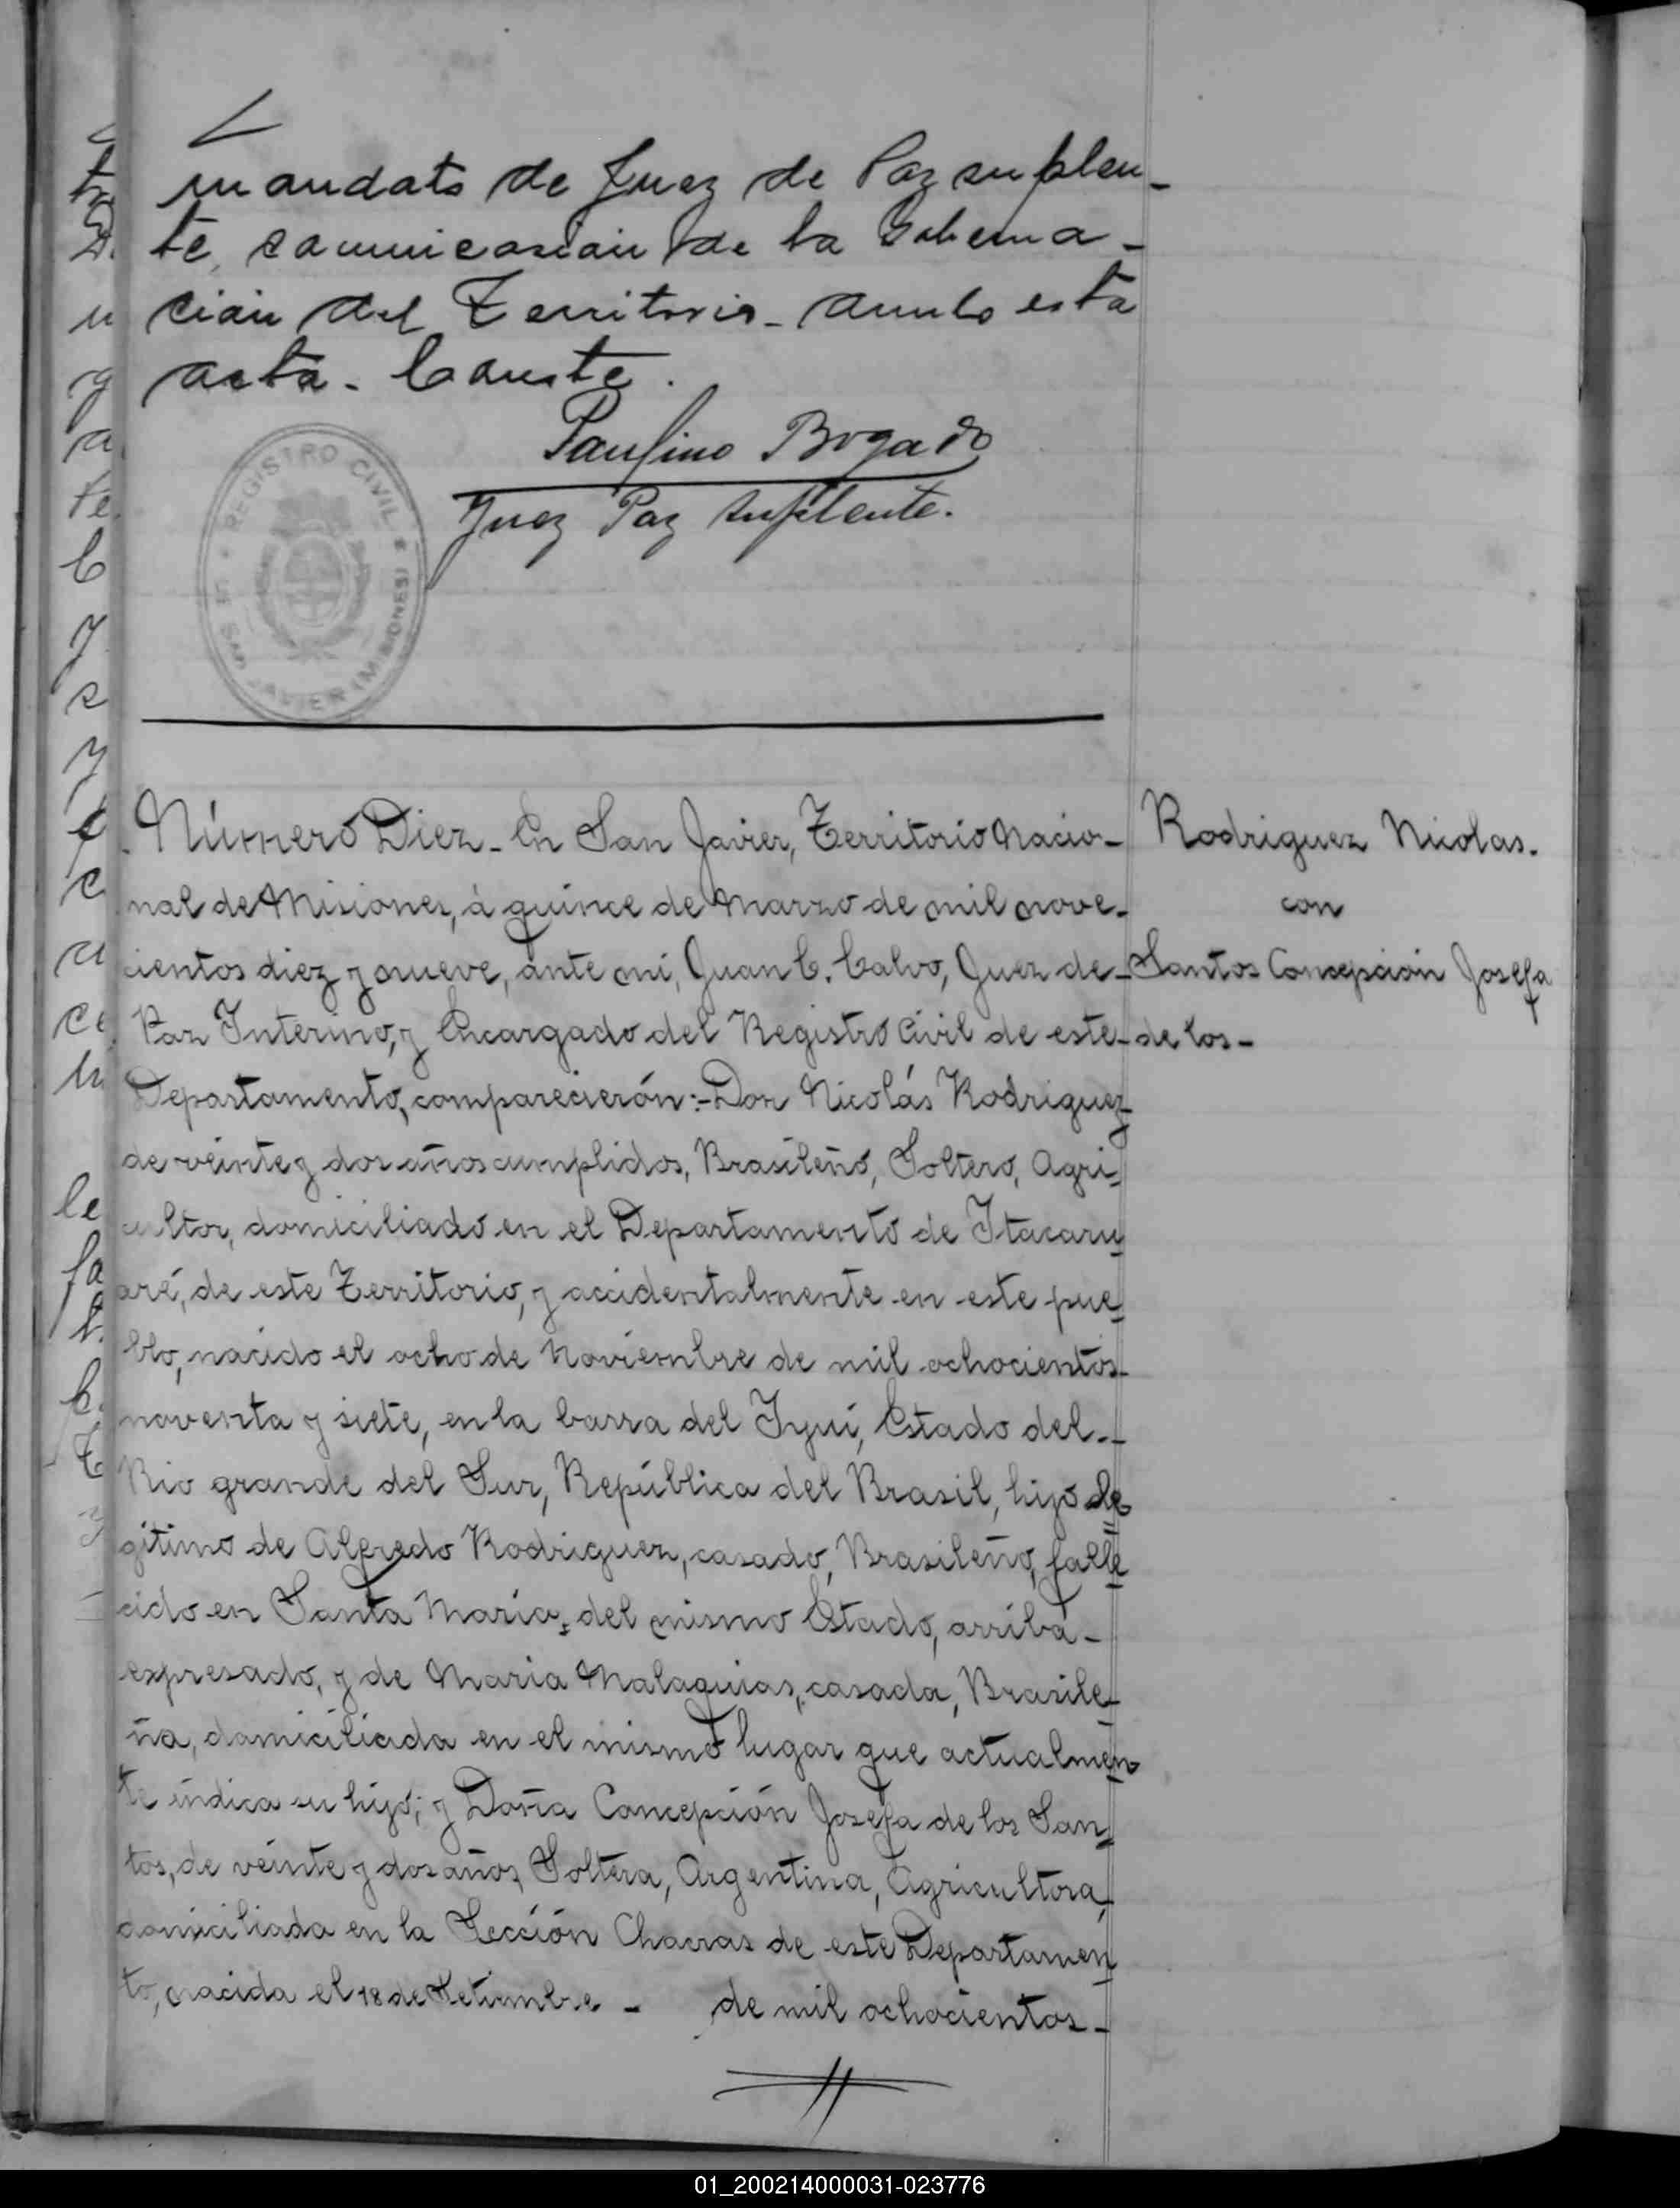 mandato de Juez de Paz suplen-
te, comunicacion de la Goberna-
cion del Territorio - anulo esta
acta - Conste.
Paulino Bogado
Juez Paz Suplente.
REGISTRO CIVIL
SAN JAVIER (MISIONES)
Número Diez - En San Javier, Territorio Nacio-
nal de Misiones, á quince de Marzo de mil nove-
cientos diez y nueve, ante mí, Juan C. Calvo, Juez de-
Paz Interino, y Encargado del Registro Civil de este-
Departamento, comparecierón:-Don Nicolás Rodriguez
de veinte y dos años cumplidos, Brasileño, Soltero, Agri-
cultor, domiciliado en el Departamento de Itacaru
aré, de este Territorio, y accidentalmente en este pue
blo, nacido el ocho de Noviembre de mil ochocientos-
noventa y siete, en la barra del Iyuí, Estado del.-
Rio grande del Sur, República del Brasil, hijo le
gitimo de Alfredo Rodriguez, casado, Brasileño, falle
cido en Santa Maria, del mismo Estado, arriba-
expresado, y de Maria Malaquias, casada, Brasile-
ña, domiciliada en el mismo lugar que actualmen
te indica su hijo; y Doña Concepción Josefa de los San
tos, de veinte y dos años, Soltera, Argentina, Agricultora,
domiciliada en la Sección Chacras de este Departamen
to, nacida el 18 de Setiembre - de mil ochocientos-
Rodriguez Nicolas.
con
Santos Concepción Josefa
de los-
01_200214000031-023776